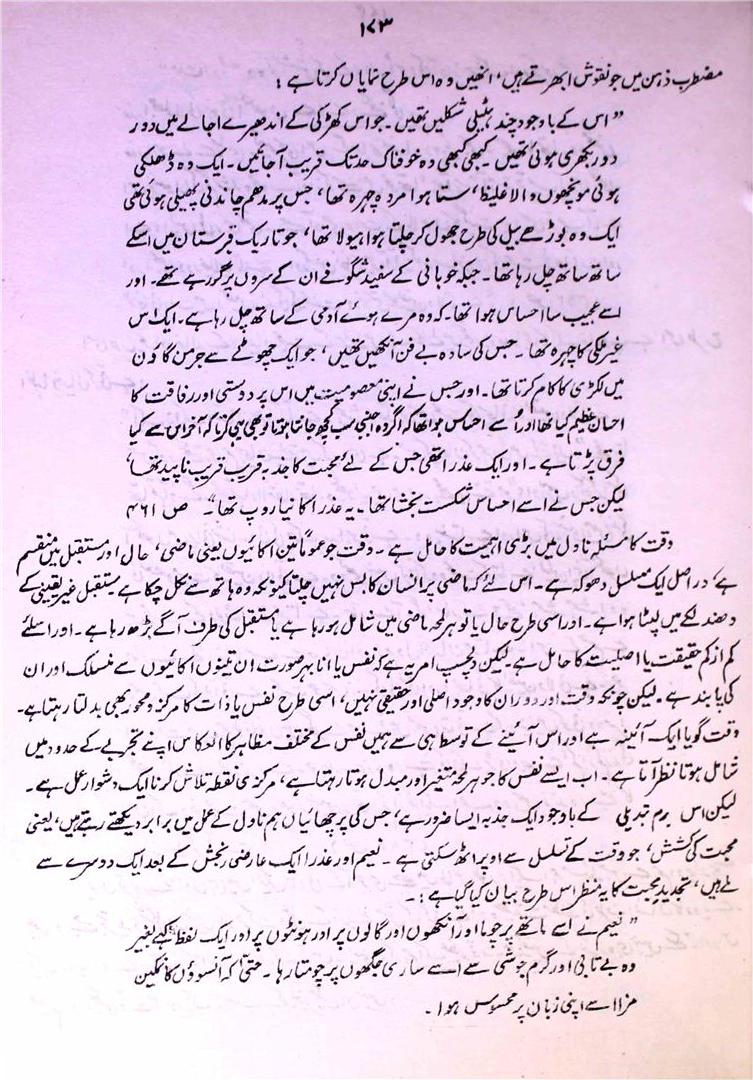 ۱۷۳
مضطرب ذہن میں جو نقوش ابھرتے ہیں، انھیں وہ اس طرح نمایاں کرتا ہے :
" اس کے باوجود چند ہٹیلی شکلیں تھیں ۔ جو اس کھڑکی کے اندھیرے اجالے میں دور
دور بکھری ہوئی تھیں ۔ کبھی کبھی وہ خوفناک حد تک قریب آ جاتیں ۔ ایک وہ ڈھلکی
ہوئی مونچھوں والا غلیظ، ستا ہوا مردہ چہرہ تھا، جس پر مدھم چاندنی پھیلی ہوئی تھی
ایک وہ بوڑھے بیل کی طرح جھول کر چلتا ہوا ہیولا تھا، جو تاریک قبرستان میں اسکے
ساتھ ساتھ چل رہا تھا ۔ جبکہ خوبانی کے سفید شگوفے ان کے سروں پر گر رہے تھے ۔ اور
اسے عجیب سا احساس ہوا تھا کہ وہ مرے ہوئے آدمی کے ساتھ چل رہا ہے ۔ ایک اس
غیر ملکی کا چہرہ تھا ۔ جس کی سادہ بے فن آنکھیں تھیں، جو ایک چھوٹے سے جرمن گاؤں
میں لکڑی کا کام کرتا تھا ۔ اور جس نے اپنی معصومیت میں اس پر دوستی اور رفاقت کا
احسان عظیم کیا تھا اور اُسے احساس ہوا تھا کہ اگر وہ اجنبی سب کچھ جانتا ہوتا تو بھی یہی کرتا کہ آخر اس سے کیا
فرق پڑتا ہے ۔ اور ایک عذرا تھی جس کے لئے محبت کا جذبہ قریب قریب ناپید تھا،
لیکن جس نے اسے احساس شکست بخشا تھا ۔ یہ عذرا کا نیا روپ تھا" ۔ ص ۴۶۱
وقت کا مسئلہ ناول میں بڑی اہمیت کا حامل ہے ۔ وقت جو عموماً تین اکائیوں یعنی ماضی، حال اور مستقبل میں منقسم
ہے، در اصل ایک مسلسل دھوکہ ہے ۔ اس لئے کہ ماضی پر انسان کا بس نہیں چلتا کیونکہ وہ ہاتھ سے نکل چکا ہے مستقبل غیر یقینی کے
دھندلکے میں لپٹا ہوا ہے ۔ اور اسی طرح حال یا تو ہر لمحہ ماضی میں شامل ہو رہا ہے یا مستقبل کی طرف آگے بڑھ رہا ہے ۔ اور اسلئے
کم از کم حقیقت یا اصلیت کا حامل ہے ۔ لیکن دلچسپ امر یہ ہے کہ نفس یا انا بہر صورت اِن تینوں اکائیوں سے منسلک اور ان
کی پابند ہے ۔ لیکن چونکہ وقت اور دوران کا وجود اصلی اور حقیقی نہیں، اسی طرح نفس یا ذات کا مرکز و محور بھی بدلتا رہتا ہے ۔
وقت گویا ایک آئینہ ہے اور اس آئینے کے توسط ہی سے ہمیں نفس کے مختلف مظاہر کا انعکاس اپنے تجربے کے حدود میں
شامل ہوتا نظر آتا ہے ۔ اب ایسے نفس کا جو ہر لمحہ متغیر اور مبدل ہوتا رہتا ہے، مرکزی نقطہ تلاش کرنا ایک دشوار عمل ہے ۔
لیکن اس ہر دم تبدیلی کے باوجود ایک جذبہ ایسا ضرور ہے، جس کی پرچھائیاں ہم ناول کے عمل میں برابر دیکھتے رہتے ہیں، یعنی
محبت کی کشش، جو وقت کے تسلسل سے اوپر اٹھ سکتی ہے ۔ نعیم اور عذرا ایک عارضی رنجش کے بعد ایک دوسرے سے
ملے ہیں، تجدید محبت کا یہ منظر اس طرح بیان کیا گیا ہے : ۔
" نعیم نے اسے ماتھے پر چوما اور آنکھوں اور گالوں پر اور ہونٹوں پر اور ایک لفظ کہے بغیر
وہ بے تابی اور گرم جوشی سے اسے ساری جگہوں پر چومتا رہا ۔ حتیٰ کہ آنسوؤں کا نمکین
مزا اسے اپنی زبان پر محسوس ہوا ۔